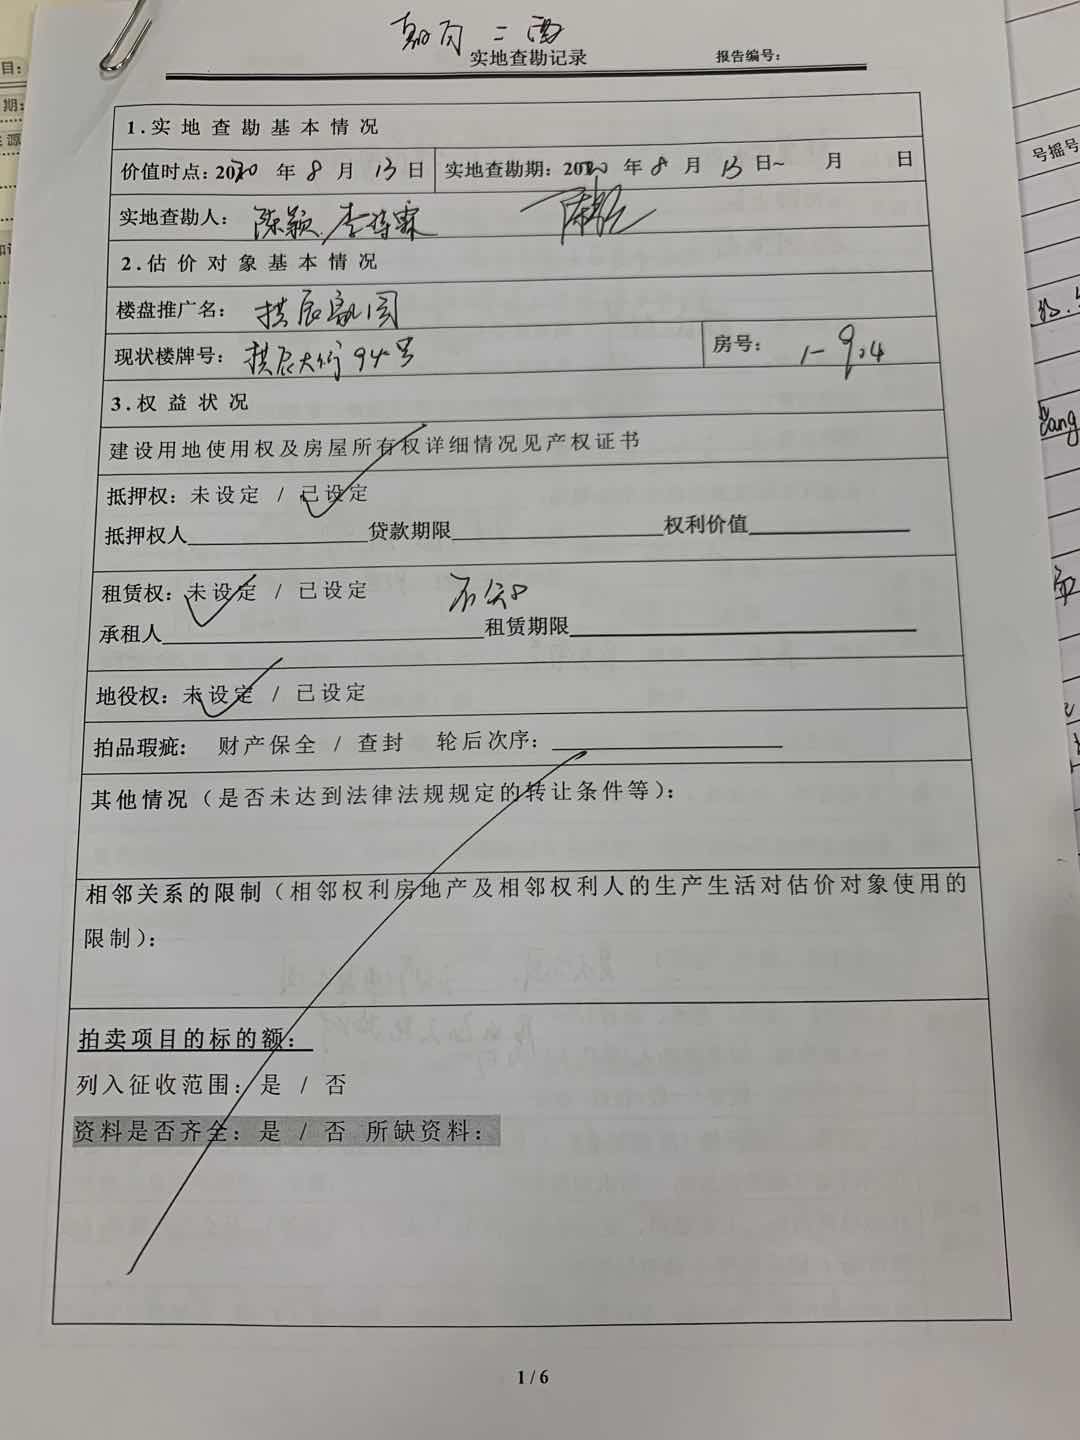 实地查勘记录 报告编号：
1.实地查勘基本情况
价值时点：2020 年 8 月 13 日 实地查勘期：2020 年 8 月 13 日~ 月 日
实地查勘人： 陈颖
2.估价对象基本情况
楼盘推广名： 拱辰家园
现状楼牌号： 拱辰大街94号 房号： 1-904
3.权益状况
建设用地使用权及房屋所有权详细情况见产权证书
抵押权：未设定 / 已设定
抵押权人 贷款期限 权利价值
租赁权：未设定 / 已设定 不知
承租人 租赁期限
地役权：未设定 / 已设定
拍品瑕疵： 财产保全 / 查封 轮后次序：
其他情况（是否未达到法律法规规定的转让条件等）：
相邻关系的限制（相邻权利房地产及相邻权利人的生产生活对估价对象使用的
限制）：
拍卖项目的标的额：
列入征收范围：是 / 否
资料是否齐全：是 / 否 所缺资料：
1 / 6
目：
期：
源
号摇号